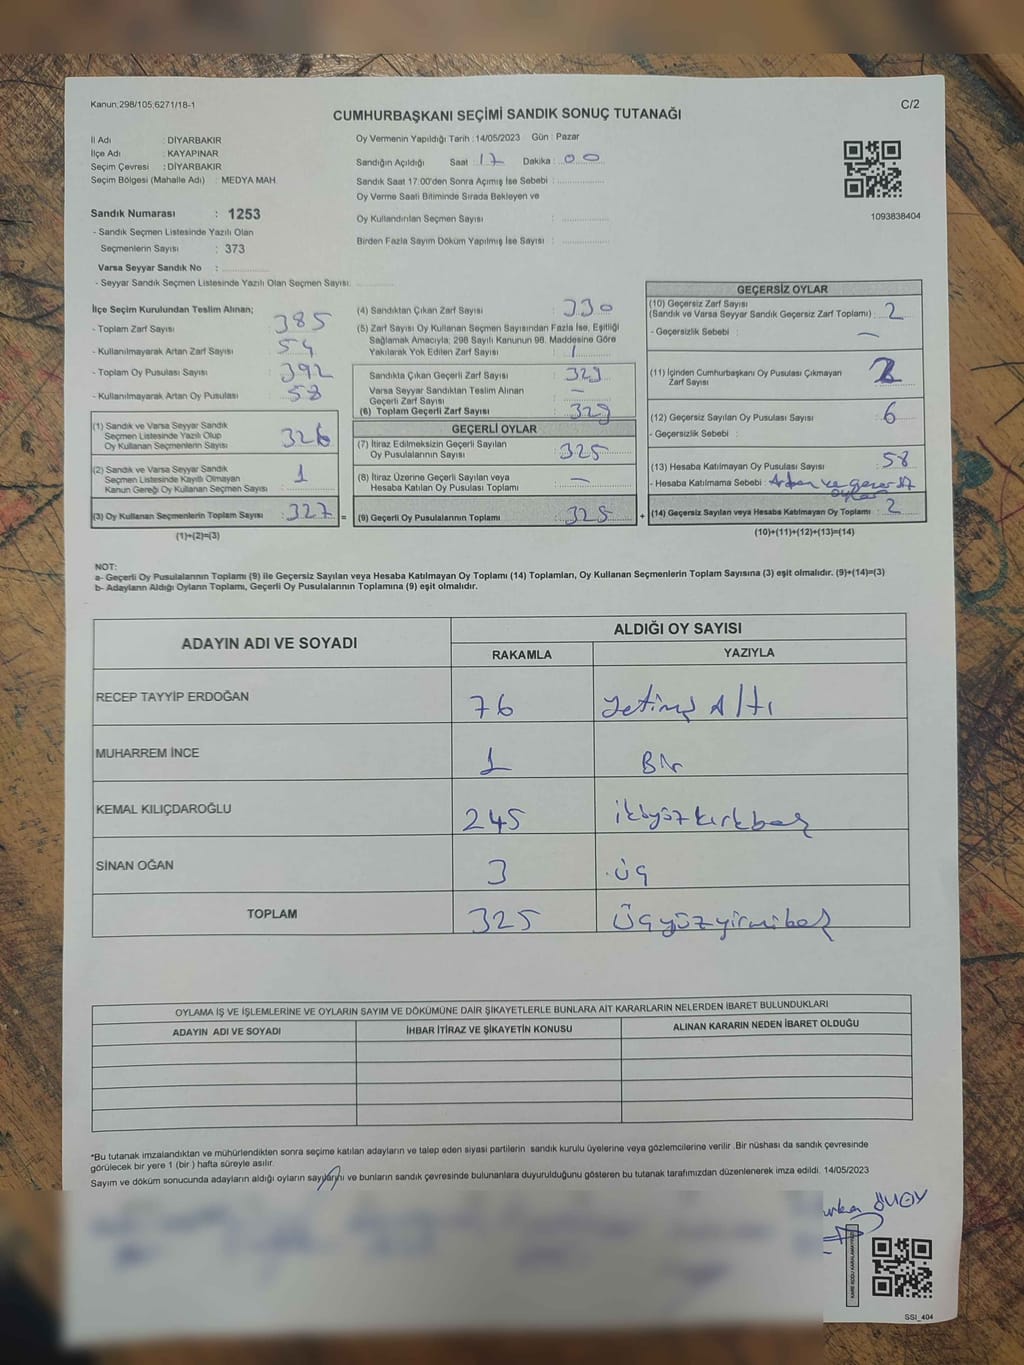 Kanun;298/105,6271/18-1
C/2
CUMHURBAŞKANI SEÇİMİ SANDIK SONUÇ TUTANAĞI
İl Adı : DİYARBAKIR
İlçe Adı : KAYAPINAR
Seçim Çevresi : DİYARBAKIR
Seçim Bölgesi (Mahalle Adı) : MEDYA MAH.
Sandık Numarası : 1253
- Sandık Seçmen Listesinde Yazılı Olan
Seçmenlerin Sayısı : 373
Varsa Seyyar Sandık No :
- Seyyar Sandık Seçmen Listesinde Yazılı Olan Seçmen Sayısı:
Oy Vermenin Yapıldığı Tarih : 14/05/2023 Gün : Pazar
Sandığın Açıldığı Saat : 17 Dakika : 00
Sandık Saat 17:00'den Sonra Açımış İse Sebebi :
Oy Verme Saati Bitiminde Sırada Bekleyen ve
Oy Kullandırılan Seçmen Sayısı :
Birden Fazla Sayım Döküm Yapılmış İse Sayısı :
1093838404
İlçe Seçim Kurulundan Teslim Alınan;
- Toplam Zarf Sayısı : 385
- Kullanılmayarak Artan Zarf Sayısı : 54
- Toplam Oy Pusulası Sayısı : 392
- Kullanılmayarak Artan Oy Pusulası : 58
(1) Sandık ve Varsa Seyyar Sandık
Seçmen Listesinde Yazılı Olup
Oy Kullanan Seçmenlerin Sayısı : 326
(2) Sandık ve Varsa Seyyar Sandık
Seçmen Listesinde Kayıtlı Olmayan
Kanun Gereği Oy Kullanan Seçmen Sayısı : 1
(3) Oy Kullanan Seçmenlerin Toplam Sayısı : 327 =
(1)+(2)=(3)
(4) Sandıktan Çıkan Zarf Sayısı : 330
(5) Zarf Sayısı Oy Kullanan Seçmen Sayısından Fazla İse, Eşitliği
Sağlamak Amacıyla, 298 Sayılı Kanunun 98. Maddesine Göre
Yakılarak Yok Edilen Zarf Sayısı : 1
Sandıkta Çıkan Geçerli Zarf Sayısı : 329
Varsa Seyyar Sandıktan Teslim Alınan
Geçerli Zarf Sayısı : —
(6) Toplam Geçerli Zarf Sayısı : 329
GEÇERLİ OYLAR
(7) İtiraz Edilmeksizin Geçerli Sayılan
Oy Pusulalarının Sayısı : 325
(8) İtiraz Üzerine Geçerli Sayılan veya
Hesaba Katılan Oy Pusulası Toplamı : —
(9) Geçerli Oy Pusulalarının Toplamı : 325 +
GEÇERSİZ OYLAR
(10) Geçersiz Zarf Sayısı
(Sandık ve Varsa Seyyar Sandık Geçersiz Zarf Toplamı) : 2
- Geçersizlik Sebebi : —
(11) İçinden Cumhurbaşkanı Oy Pusulası Çıkmayan
Zarf Sayısı : 2
(12) Geçersiz Sayılan Oy Pusulası Sayısı : 6
- Geçersizlik Sebebi :
(13) Hesaba Katılmayan Oy Pusulası Sayısı : 58
- Hesaba Katılmama Sebebi : Artan ve
oylar
(14) Geçersiz Sayılan veya Hesaba Katılmayan Oy Toplamı : 2
(10)+(11)+(12)+(13)=(14)
NOT:
a- Geçerli Oy Pusulalarının Toplamı (9) ile Geçersiz Sayılan veya Hesaba Katılmayan Oy Toplamı (14) Toplamları, Oy Kullanan Seçmenlerin Toplam Sayısına (3) eşit olmalıdır. (9)+(14)=(3)
b- Adayların Aldığı Oyların Toplamı, Geçerli Oy Pusulalarının Toplamına (9) eşit olmalıdır.
ADAYIN ADI VE SOYADI
ALDIĞI OY SAYISI
RAKAMLA YAZIYLA
RECEP TAYYİP ERDOĞAN 76 Yetmiş Altı
MUHARREM İNCE 1 Bir
KEMAL KILIÇDAROĞLU 245 ikiyüzkırkbeş
SİNAN OĞAN 3 üç
TOPLAM 325 Üçyüzyirmibeş
OYLAMA İŞ VE İŞLEMLERİNE VE OYLARIN SAYIM VE DÖKÜMÜNE DAİR ŞİKAYETLERLE BUNLARA AİT KARARLARIN NELERDEN İBARET BULUNDUKLARI
ADAYIN ADI VE SOYADI İHBAR İTİRAZ VE ŞİKAYETİN KONUSU ALINAN KARARIN NEDEN İBARET OLDUĞU
*Bu tutanak imzalandıktan ve mühürlendikten sonra seçime katılan adayların ve talep eden siyasi partilerin sandık kurulu üyelerine veya gözlemcilerine verilir .Bir nüshası da sandık çevresinde
görülecek bir yere 1 (bir ) hafta süreyle asılır.
Sayım ve döküm sonucunda adayların aldığı oyların sayılarını ve bunların sandık çevresinde bulunanlara duyurulduğunu gösteren bu tutanak tarafımızdan düzenlenerek imza edildi. 14/05/2023
KARE KODU KARALAMAYINIZ
SSI_404